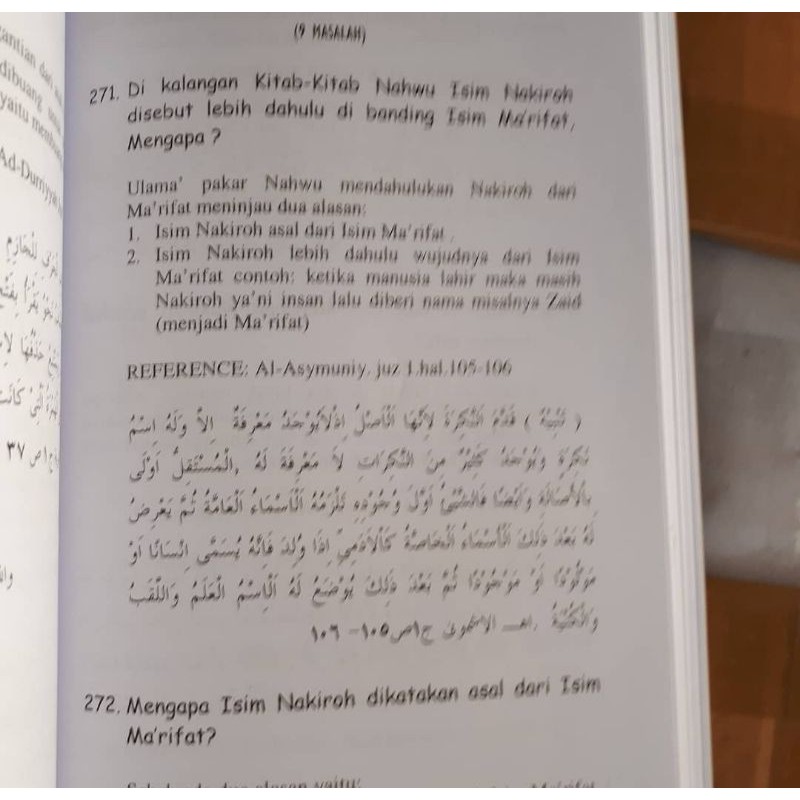 (9 MASALAH)
271. Di kalangan Kitab-Kitab Nahwu Isim Nakiroh
disebut lebih dahulu di banding Isim Ma'rifat,
Mengapa ?
Ulama' pakar Nahwu mendahulukan Nakiroh dari
Ma'rifat meninjau dua alasan:
1. Isim Nakiroh asal dari Isim Ma'rifat .
2. Isim Nakiroh lebih dahulu wujudnya dari Isim
Ma'rifat contoh: ketika manusia lahir maka masih
Nakiroh ya'ni insan lalu diberi nama misalnya Zaid
(menjadi Ma'rifat)
REFERENCE: Al-Asymuniy, juz 1.hal.105-106
( تَنْبِيْهٌ ) قَدَّمَ النَّكِرَةَ لِأَنَّهَا الْأَصْلُ إِذْ لاَيُوْجَدُ مَعْرِفَةٌ إِلاَّ وَلَهُ اِسْمُ
نَكِرَةٍ وَيُوْجَدُ كَثِيْرٌ مِنَ النَّكِرَاتِ لاَ مَعْرِفَةَ لَهُ ,الْمُسْتَقِلُّ أَوْلَى
بِالْأَصَالَةِ وَأَيْضًا فَالشَّيْئُ أَوَّلَ وُجُوْدِهِ تَلْزَمُهُ الْأَسْمَاءُ الْعَامَّةُ ثُمَّ يَعْرِضُ
لَهُ بَعْدَ ذَلِكَ الْأَسْمَاءُ الْخَاصَّةُ كَالْأَدَمِيِّ إِذَا وُلِدَ فَإِنَّهُ يُسَمَّى إِنْسَانًا أَوْ
مَوْلُوْدًا أَوْ مَوْجُوْدًا ثُمَّ بَعْدَ ذَلِكَ يُوْضَعُ لَهُ الْاِسْمُ الْعَلَمُ وَاللَّقَبُ
وَالْكُنْيَةُ .اهـ الاشمونى ج١ص١٠٥-١٠٦
272. Mengapa Isim Nakiroh dikatakan asal dari Isim
Ma'rifat?